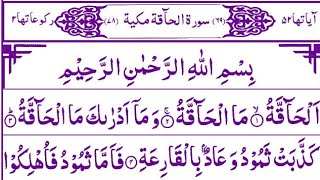 اٰیاتها ۵۲ (۶۹) سورة الحآقة مكية (۷۸) ركوعاتها ۲
بِسْمِ اللهِ الرَّحْمٰنِ الرَّحِيْمِ
اَلْحَآقَّةُ ۙ۱ مَا الْحَآقَّةُ ۚ۲ وَمَاۤ اَدْرٰىكَ مَا الْحَآقَّةُ ؕ۳
كَذَّبَتْ ثَمُوْدُ وَعَادٌۢ بِالْقَارِعَةِ ۴ فَاَمَّا ثَمُوْدُ فَاُهْلِكُوْا